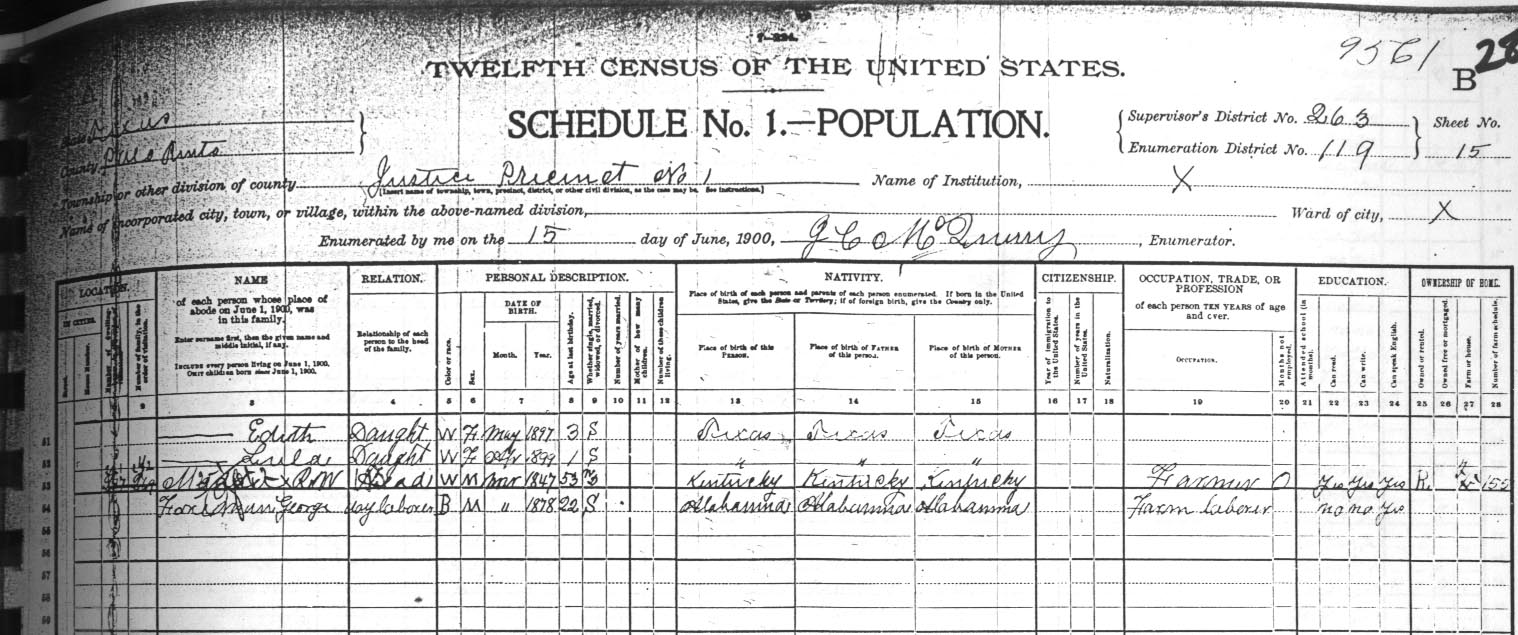 7-224.
TWELFTH CENSUS OF THE UNITED STATES.
9561
B
28
SCHEDULE No. 1.—POPULATION.
State Texas
County Palo Pinto
Supervisor's District No. 263
Enumeration District No. 119
Sheet No.
15
Township or other division of county Justice Precinct No 1
[Insert name of township, town, precinct, district, or other civil division, as the case may be. See instructions.]
Name of Institution, X
Name of incorporated city, town, or village, within the above-named division,
Ward of city, X
Enumerated by me on the 15 day of June, 1900, J C McQuerry, Enumerator.
LOCATION. NAME RELATION. PERSONAL DESCRIPTION. NATIVITY. CITIZENSHIP. OCCUPATION, TRADE, OR PROFESSION EDUCATION. OWNERSHIP OF HOME.
IN CITIES.
Street.
House Number.
Number of family, in the order of visitation.
of each person whose place of abode on June 1, 1900, was in this family.
Enter surname first, then the given name and middle initial, if any.
INCLUDE every person living on June 1, 1900. OMIT children born since June 1, 1900.
Relationship of each person to the head of the family.
Color or race.
Sex.
DATE OF BIRTH.
Month. Year.
Age at last birthday.
Whether single, married, widowed, or divorced.
Number of years married.
Mother of how many children.
Number of these children living.
Place of birth of each person and parents of each person enumerated. If born in the United States, give the State or Territory; if of foreign birth, give the Country only.
Place of birth of this PERSON.
Place of birth of FATHER of this person.
Place of birth of MOTHER of this person.
Year of immigration to the United States.
Number of years in the United States.
Naturalization.
of each person TEN YEARS of age and over.
OCCUPATION.
Months not employed.
Attended school (in months).
Can read.
Can write.
Can speak English.
Owned or rented.
Owned free or mortgaged.
Farm or house.
Number of farm schedule.
2 3 4 5 6 7 8 9 10 11 12 13 14 15 16 17 18 19 20 21 22 23 24 25 26 27 28
51 Edith Daught W F May 1897 3 S Texas Texas Texas
52 Daught W F Apr 1899 1 S " " "
53 R W Head W M Mar 1847 53 Kentucky Kentucky Kentucky Farmer 0 Yes Yes Yes R 155
54 George day laborer B M " 1878 22 S Alabamma Alabamma Alabamma Farm laborer no no Yes
55
56
57
58
59